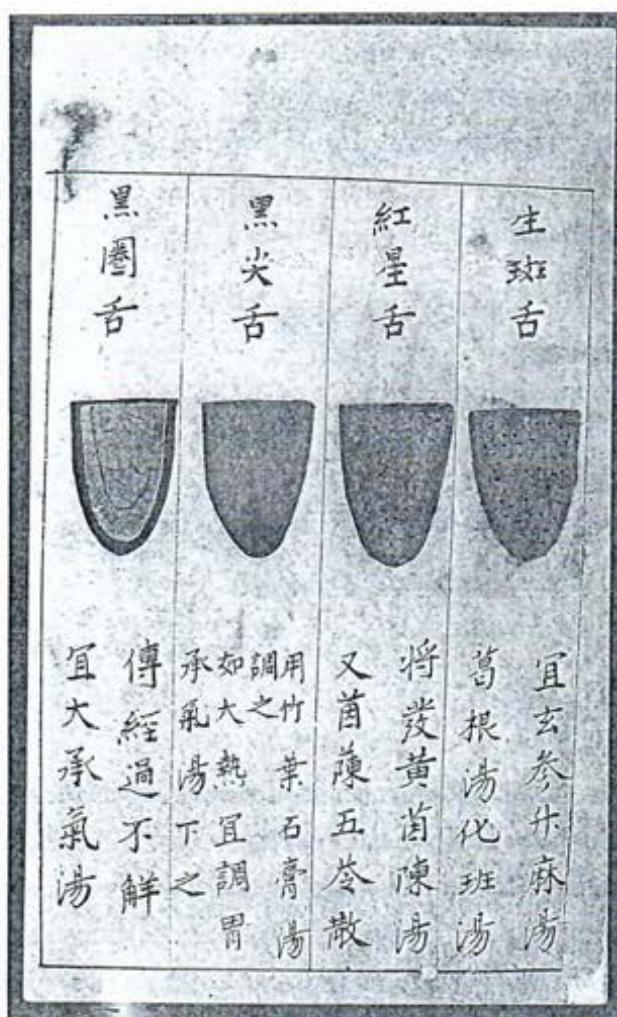 生斑舌
宜玄参升麻湯
葛根湯化班湯
紅星舌
将發黄茵陳湯
又茵蔯五苓散
黑尖舌
用竹葉石膏湯
調之
如大熱宜調胃
承氣湯下之
黑圏舌
傳經過不解
宜大承氣湯